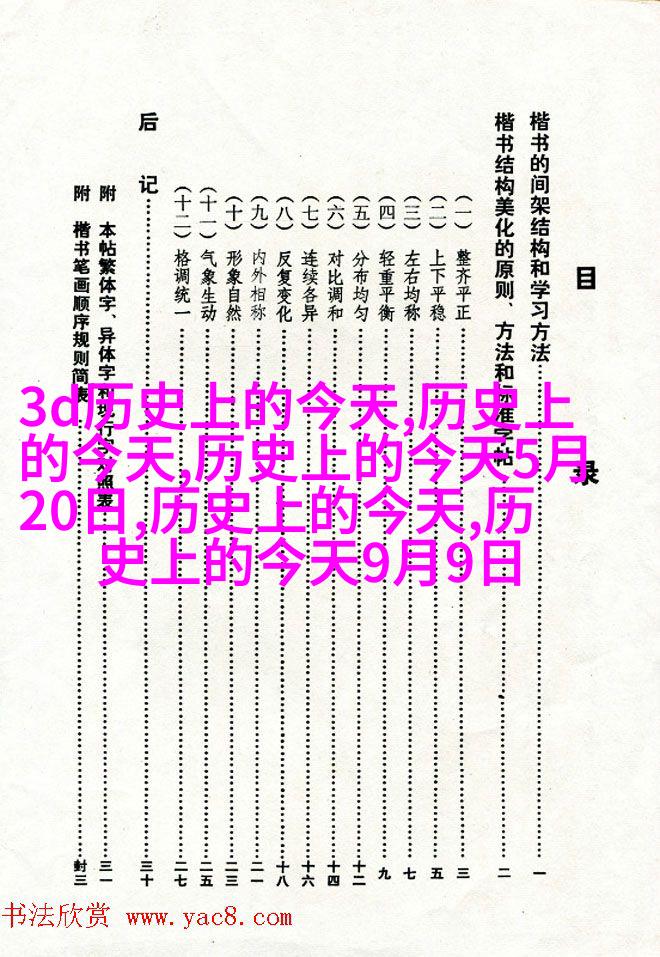 目录
楷书的间架结构和学习方法……一
楷书结构美化的原则、方法和标准字帖……二
(一)整齐平正……三
(二)上下平稳……五
(三)左右均称……七
(四)轻重平衡……九
(五)分布均匀……十二
(六)对比调和……十四
(七)连续各异……十六
(八)反复变化……十八
(九)内外相称……二一
(十)形象自然……二三
(十一)气象生动……二五
(十二)格调统一……二七
后记……三十
附 本帖繁体字、异体字和现行字照表……三一
附 楷书笔画顺序规则简表……封三
3d历史上的今天,历史上
的今天,历史上的今天5月
20日,历史上的今天,历
史上的今天9月9日
书法欣赏 www.yac8.com